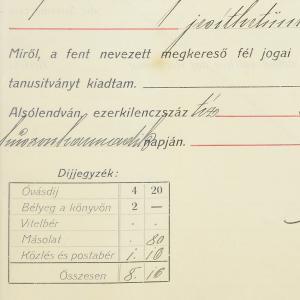 Miről, a fent nevezett megkereső fél jogai
tanusitványt kiadtam.
Alsólendván, ezerkilenczszáz tiz
huszonharmadik napján.
Díjjegyzék:
Óvásdíj 4 20
Bélyeg a könyvön 2 —
Vitelbér . .
Másolat . 80
Közlés és postabér 1. 10
Összesen 8. 10